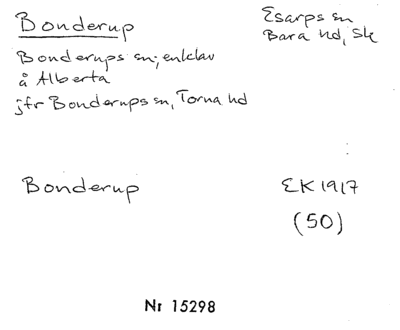 Bonderup
Esarps sn
Bara hd, Sk
Bonderups sn; enklav
å Alberta
jfr Bonderups sn, Torna hd
Bonderup
EK 1917
(50)
Nr 15298